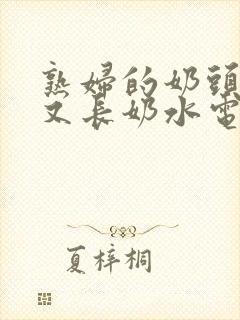 熟婦的奶頭
又長奶水電
夏梓桐